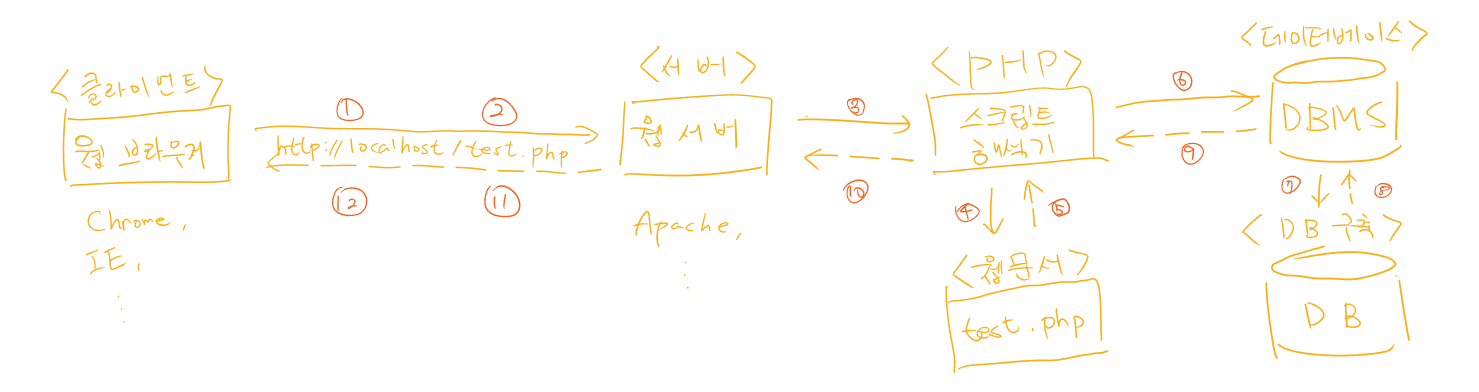 <클라이언트>
웹 브라우저
Chrome,
IE,
① ②
http://localhost/test.php
⑫ ⑪
<서버>
웹서버
Apache,
③
⑩
<PHP>
스크립트
해석기
④ ⑤
<웹문서>
test.php
⑥
⑨
<데이터베이스>
DBMS
⑦ ⑧
<DB 구축>
DB